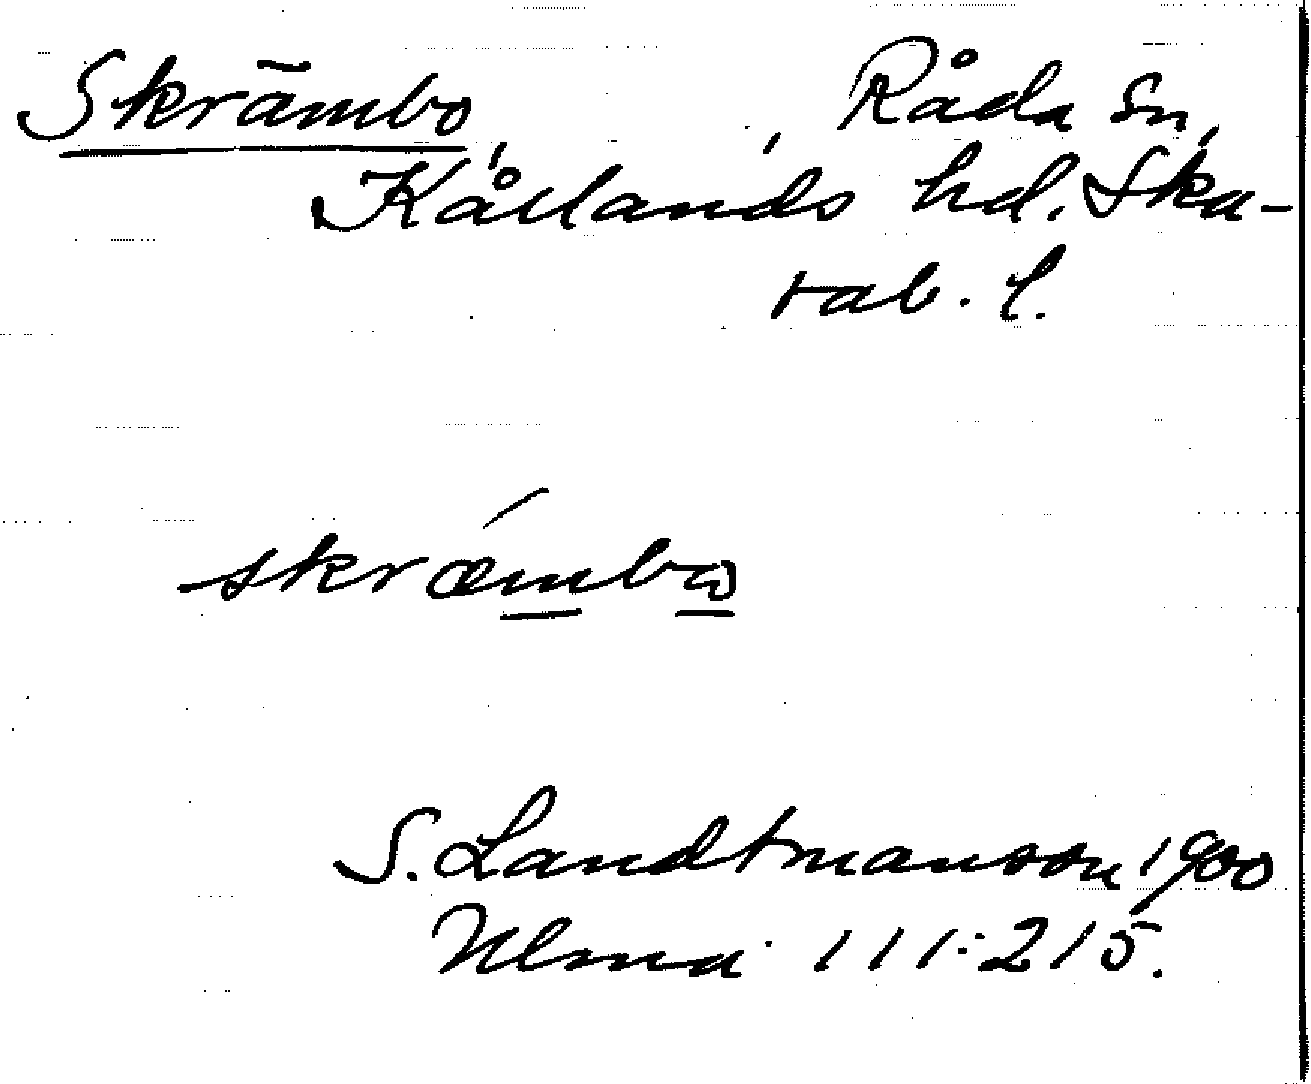 Skrämbo, Råda sn,
Kållands hd. Ska-
rab. l.
skræmbo
S. Landtmanson 1900
Ulma 111:215.